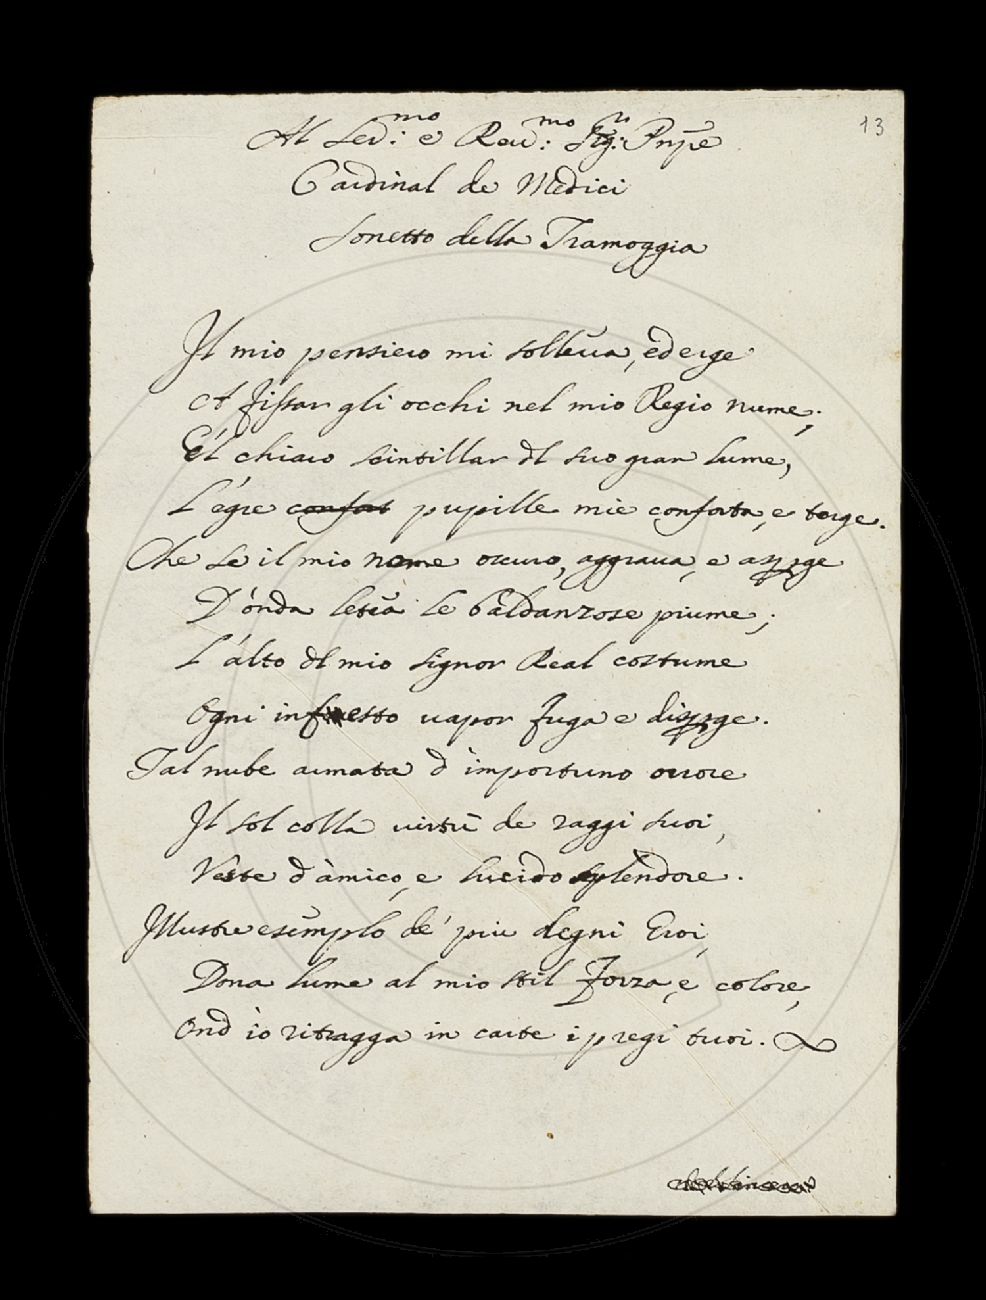 13
Al Ser.mo e Reu.mo Sig.r Prnpe
Cardinal de Medici
Sonetto della Tramoggia
Il mio pensiero mi solleua, ed erge
A fissar gli occhi nel mio Regio nume;
E'l chiaro scintillar dl suo gran lume,
L'egre confort pupille mie conforta, e terge.
Che se il mio nome oscuro, aggraua, e asperge
D'onda letea le baldanzose piume;
L'alto dl mio signor Real costume
Ogni infesto uapor fuga e disperge.
Tal nube armata d'importuno orrore
Il sol colla uirtù de raggi suoi,
Veste d'amico, e lucido splendore.
Illustre esemplo de' più degni Eroi,
Dona lume al mio stil forza, e colore,
Ond'io ritragga in carte i pregi tuoi.